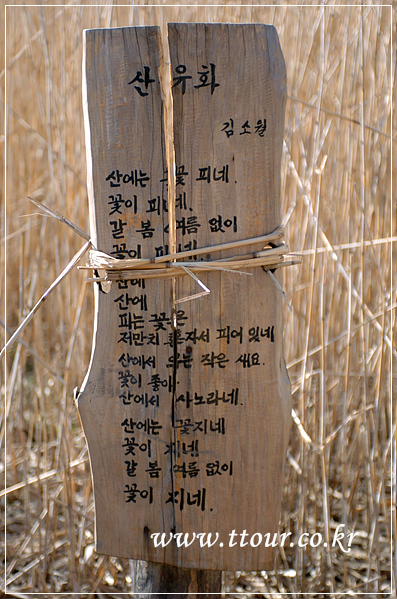 산유화
김소월
산에는 꽃 피네.
꽃이 피네.
갈 봄 여름 없이
꽃이 피네.
산에
산에
피는 꽃은
저만치 혼자서 피어 있네
산에서 우는 작은 새요.
꽃이 좋아
산에서 사노라네.
산에는 꽃지네
꽃이 지네
갈 봄 여름 없이
꽃이 지네.
www.ttour.co.kr